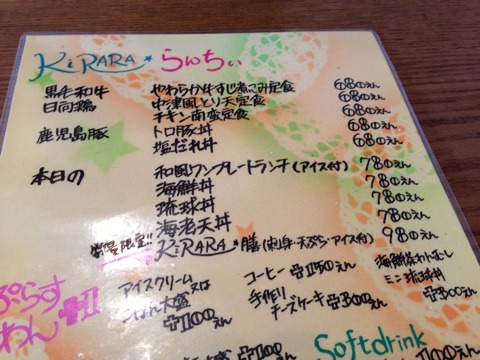 KiRARA* らんちぃ
黒毛和牛 やわらか牛すじ煮こみ定食 680えん
日向鶏 中津風とり天定食 680えん
チキン南蛮定食 680えん
鹿児島豚 トロ豚丼 680えん
塩だれ丼 680えん
本日の 和風ワンプレートランチ(アイス付) 780えん
海鮮丼 780えん
琉球丼 780えん
海老天丼 780えん
KiRARA*膳(刺身・天ぷら・アイス付) 980えん
ぷらすわん+1
アイスクリーム又はごはん大盛 +100えん
コーヒー +150えん
手作りチーズケーキ +300えん
海鮮茶わんむし
ミニ琉球丼 +300えん
Softdrink
100えん